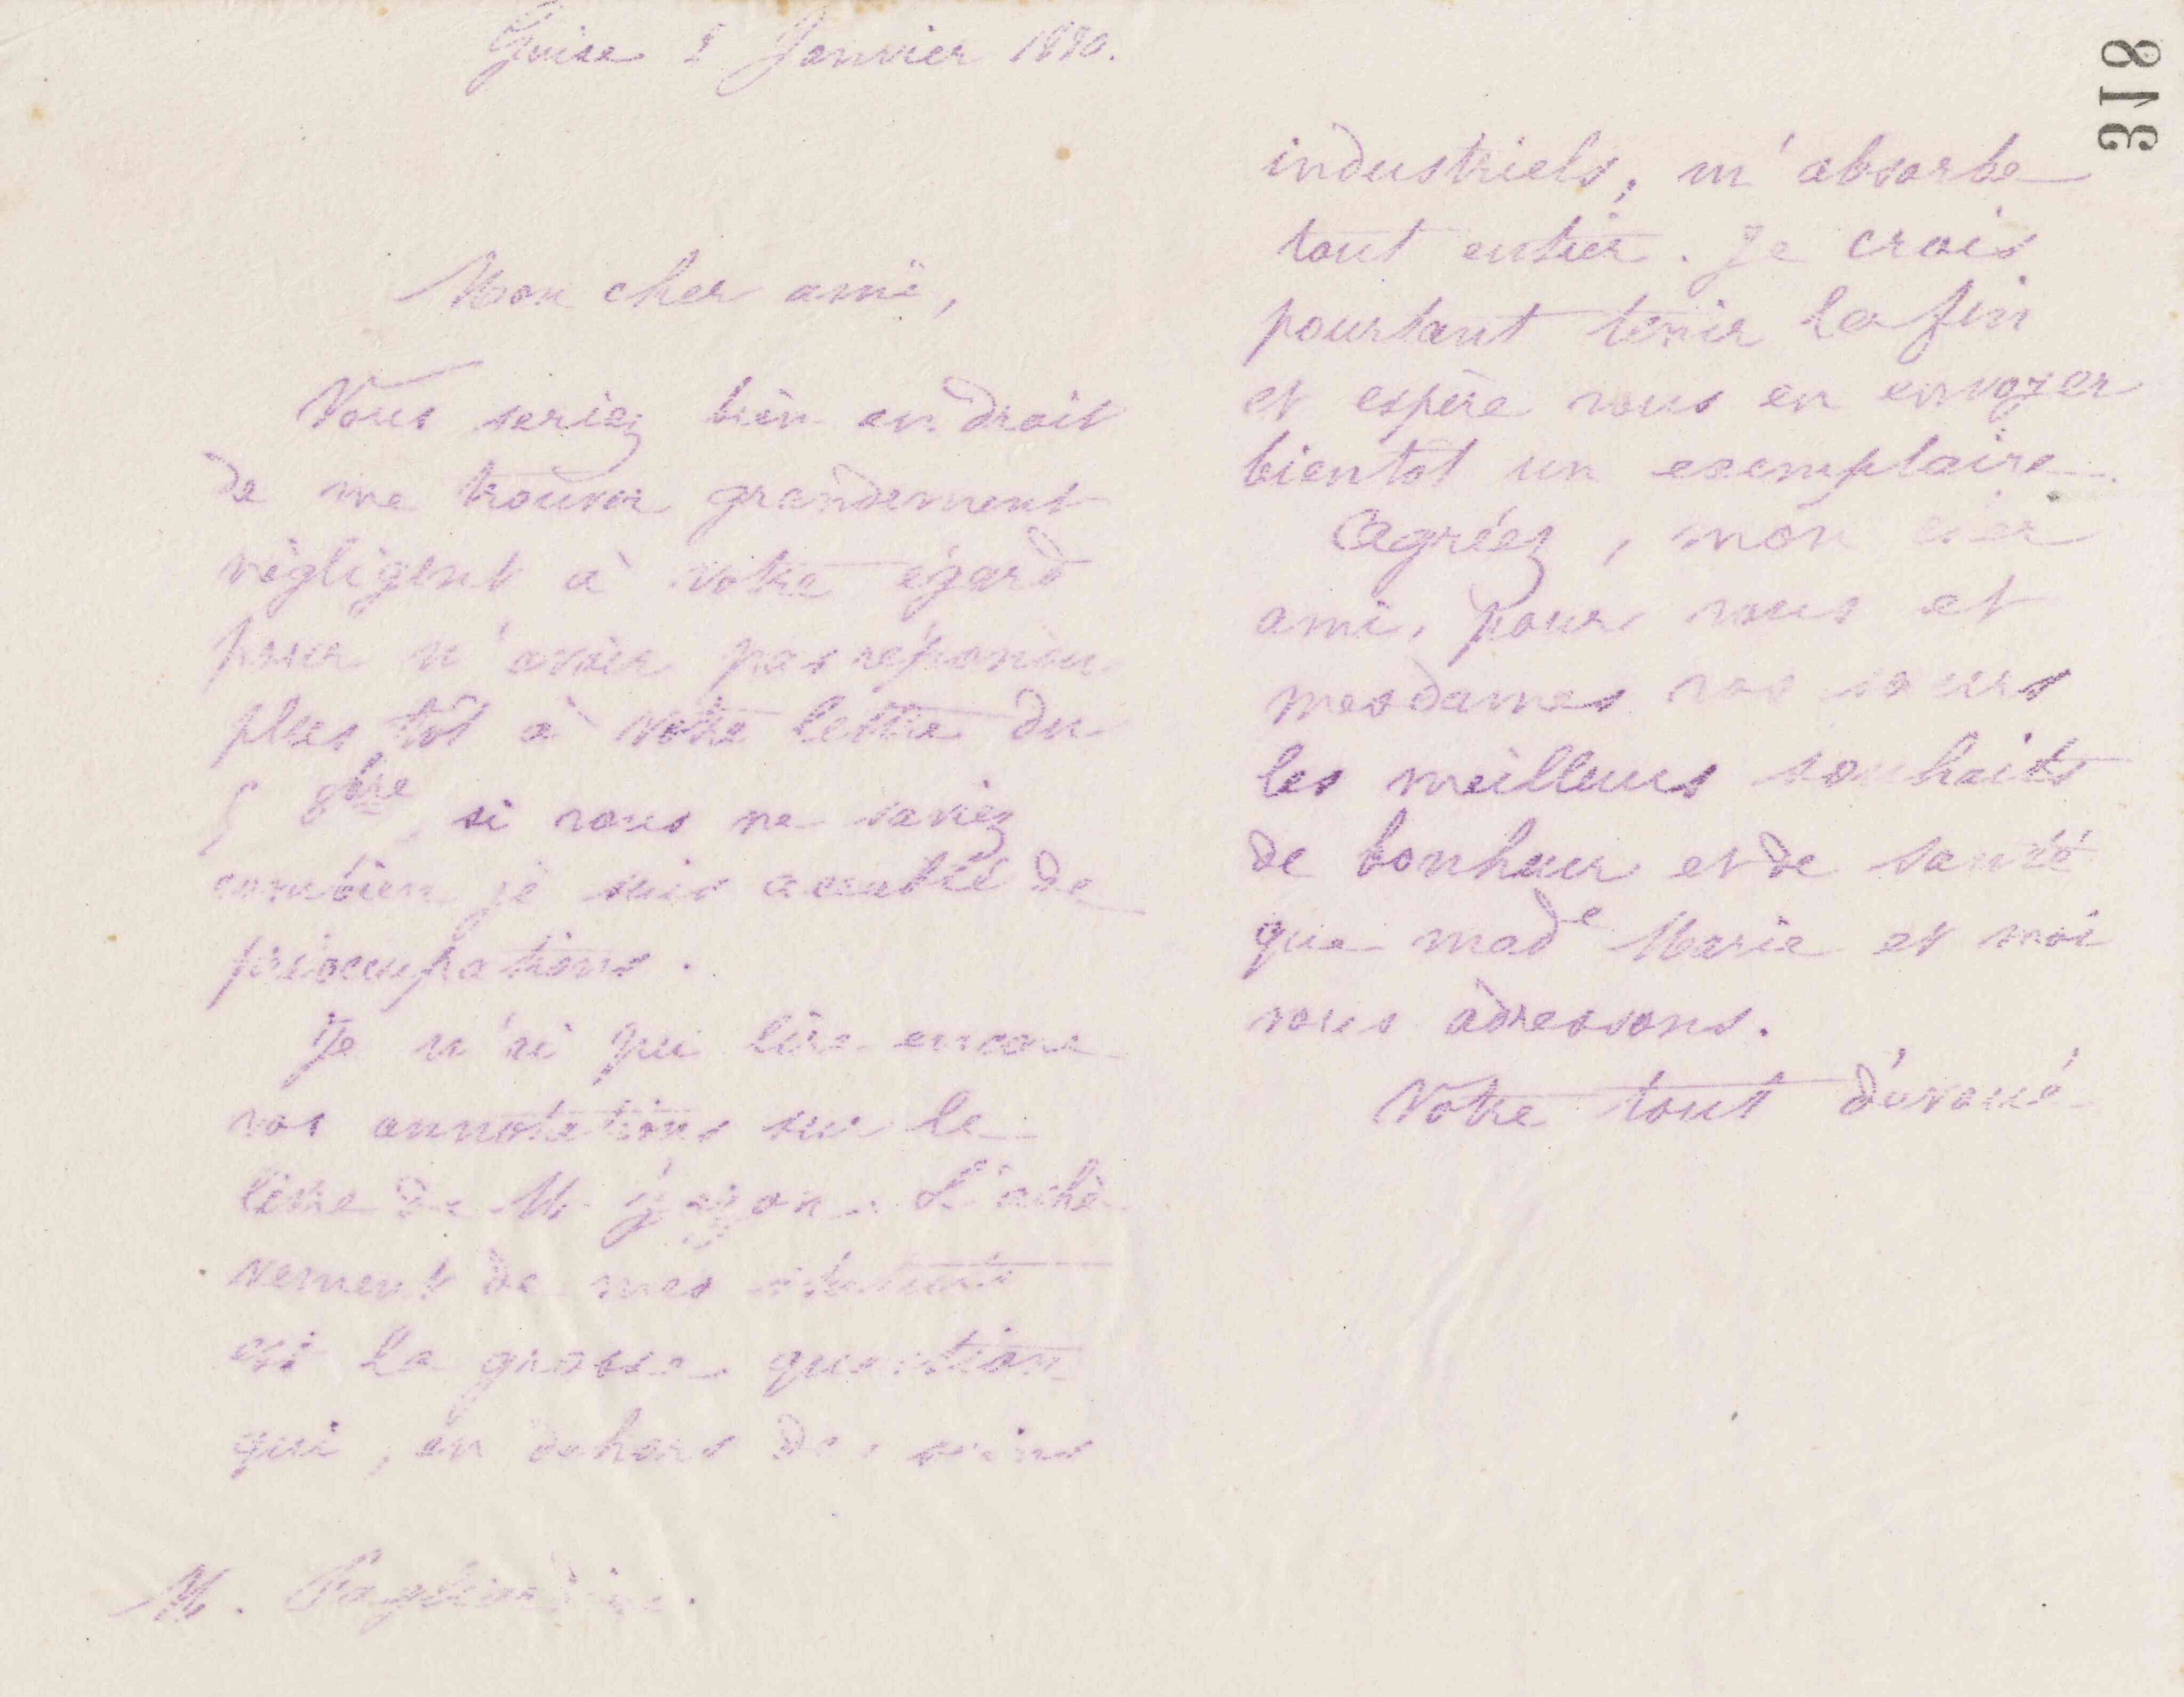 Guise 2 Janvier 1880.
318
Mon cher ami,
Vous seriez bien en droit
de me trouver grandement
négligent à votre égard
pour n'avoir pas répondu
plus tôt à votre lettre du
5 8bre, si vous ne saviez
combien je suis accablé de
préoccupations.
Je n'ai pu lire encore
vos annotations sur le
livre de M. L'achè-
vement de mes statuts
est la grosse question
qui, en dehors des soins
M. Pagliardini.
industriels, m'absorbe
tout entier. Je crois
pourtant tenir la fin
et espère vous en envoyer
bientôt un exemplaire.
Agréez, mon cher
ami, pour vous et
mesdames vos sœurs
les meilleurs souhaits
de bonheur et de santé
que made Marie et moi
vous adressons.
Votre tout dévoué